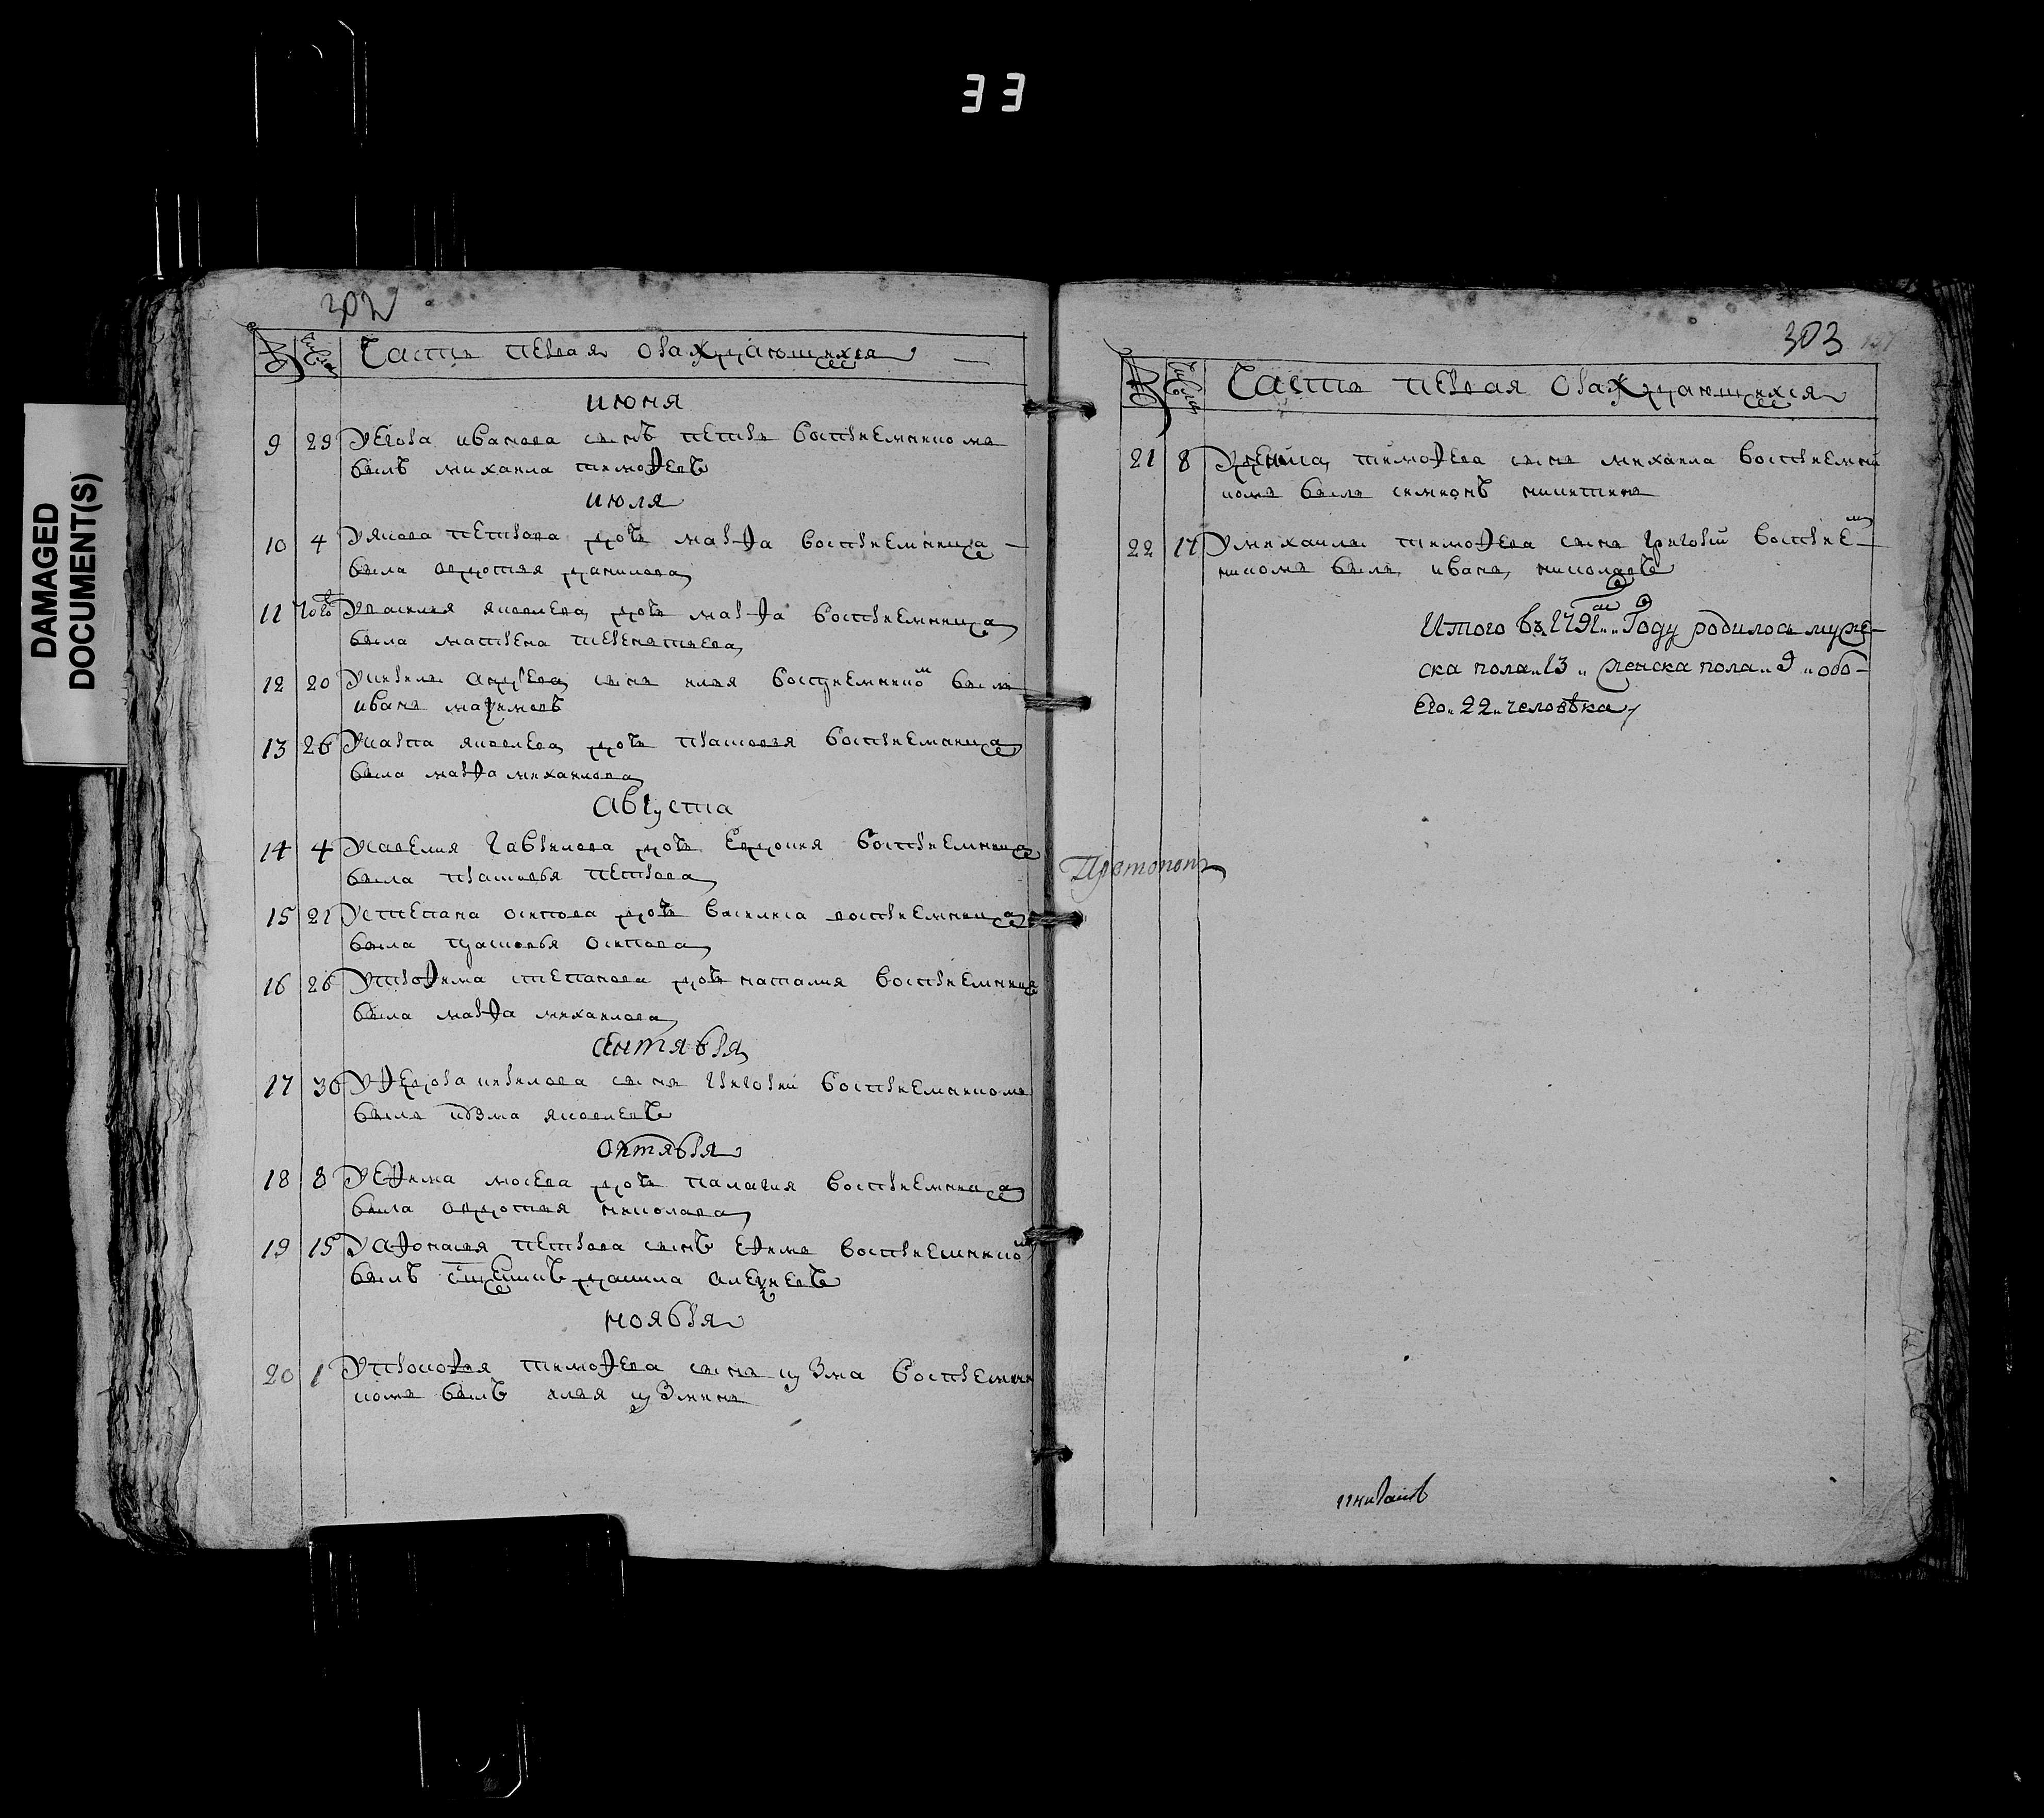 33
DAMAGED
DOCUMENT(S)
302
№ числа Часть первая ораждающихся
июня
9 29 У егора иванова сынъ петръ восприемникомъ
былъ михаила тимофеевъ
июля
10 4 У якова петрова дочь марфа восприемница
была авдотья данилова
11 того У василья яковлева дочь марфа восприемница
была матрена терентьева
12 20 У кирила андреева сынъ илья восприемником былъ
иванъ
13 26 У карпа яковлева дочь прасковья восприемница
была марфа михаилова
Августа
14 4 У савелия гаврилова дочь восприемница
была прасковья петрова
15 21 У степана осипова дочь василиса восприемница
была прасковья осипова
16 26 У трофима степанова дочь наталия восприемница
была марфа михаилова
сентября
17 30 У федора кирилова сынъ григорий восприемникомъ
былъ козма яковлевъ
октября
18 8 У ефима дочь палагия восприемница
была авдотья николаева
19 15 У афонасья петрова сынъ ефимъ восприемником
былъ данила алексеевъ
ноября
20 1 У прокофья тимофеева сынъ кузма восприемни
комъ былъ илья кузминъ
303
№ числа Часть первая ораждающихся
21 8 У тимофеева сынъ михаила восприемни
комъ былъ никитинъ
22 17 У михаилы тимофеева сынъ григорий восприем
никомъ былъ иванъ николаевъ
Итого въ 1791м Году родилось муже-
ска пола 13 женска пола 9 обо-
его 22 человѣка
Протопопъ